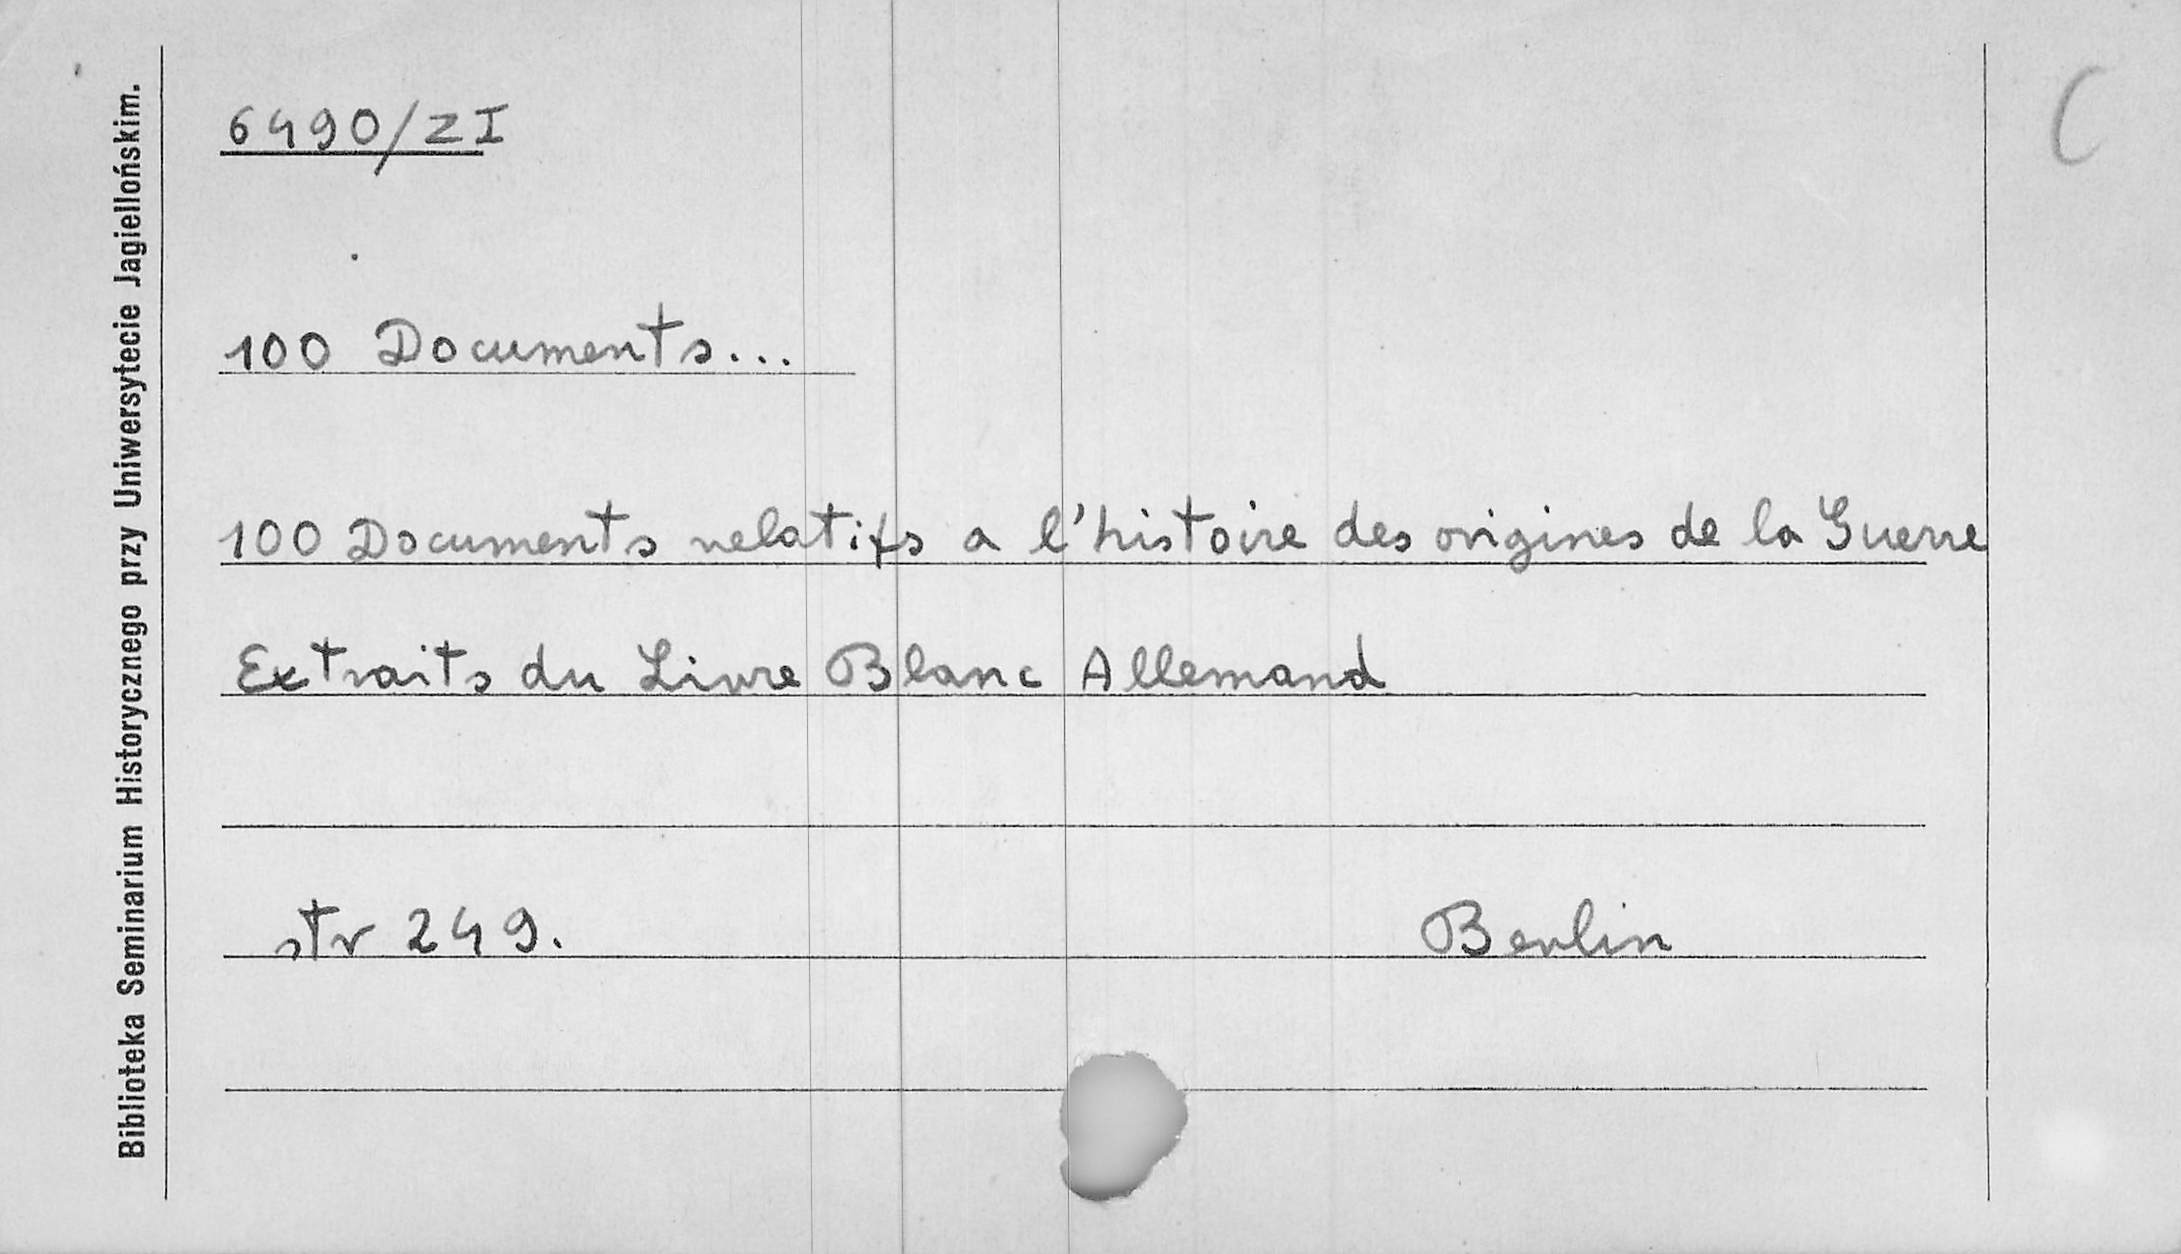 6490/ZI
C
100 Documents...
100 Documents relatifs a l'histoire des origines de la Guerre
Extraits du Livre Blanc Allemand
str 249.
Berlin
Biblioteka Seminarium Historycznego przy Uniwersytecie Jagiellońskim.